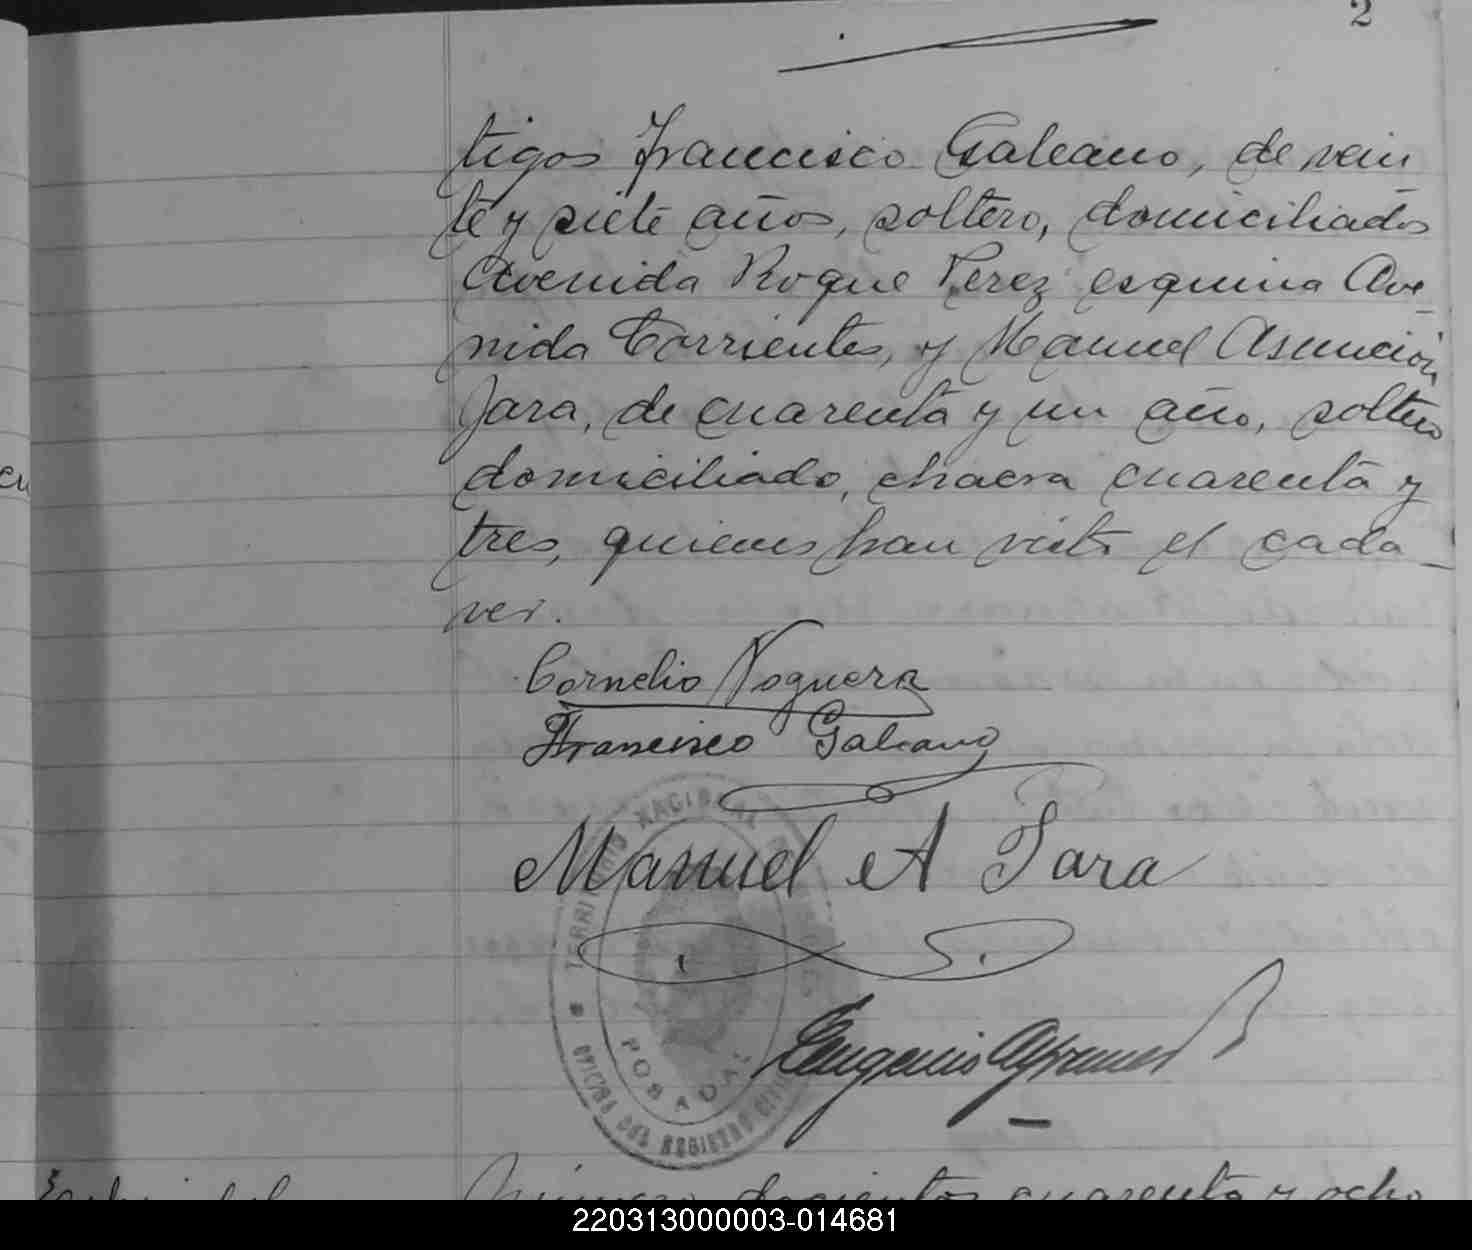 2
tigos Francisco Galeano, de vein
te y siete años, soltero, domiciliados
Avenida Roque Perez esquina Ave
nida Corrientes, y Manuel Asunción
Jara, de cuarenta y un año, soltero
domiciliado, chacra cuarenta y
tres, quienes han visto el cada-
ver.
Cornelio Noguera
Francisco Galeano
Manuel A Jara
TERRITORIO NACIONAL DE MISIONES
POSADAS
OFICINA DEL REGISTRO CIVIL
Eugenio
Número docientos cuarenta y ocho
220313000003-014681